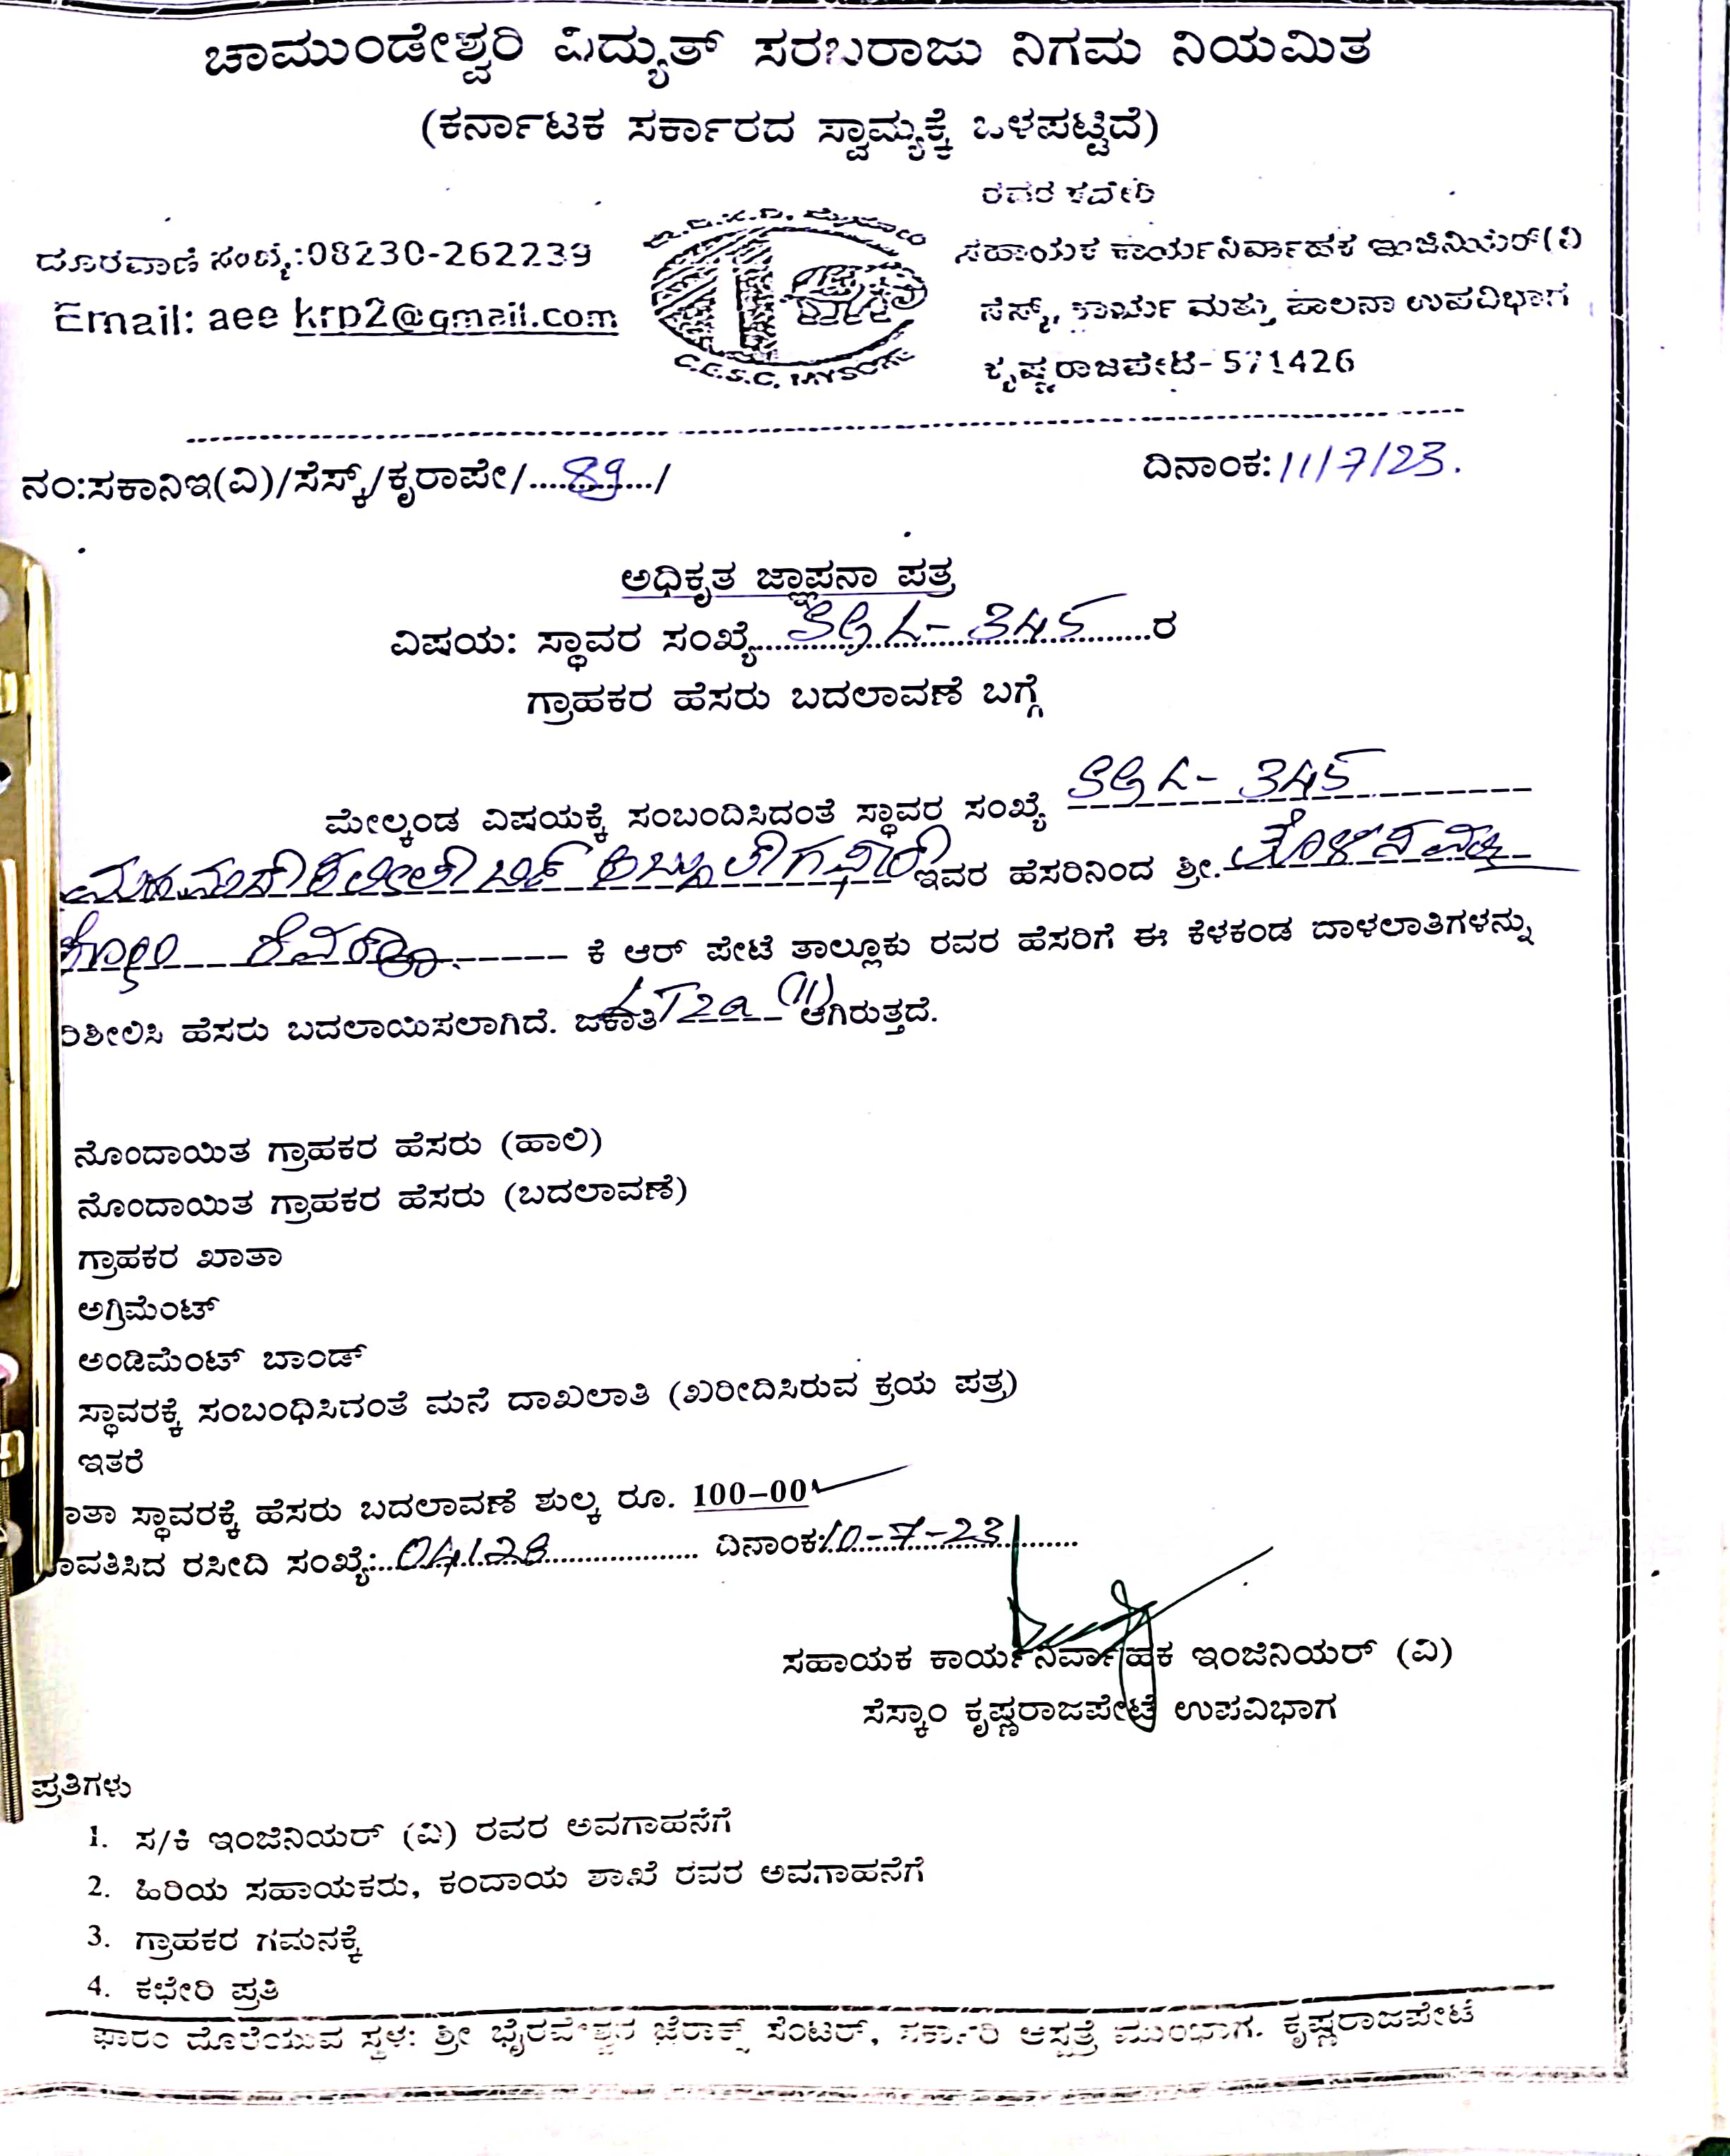 ಚಾಮುಂಡೇಶ್ವರಿ ವಿದ್ಯುತ್ ಸರಬರಾಜು ನಿಗಮ ನಿಯಮಿತ
(ಕರ್ನಾಟಕ ಸರ್ಕಾರದ ಸ್ವಾಮ್ಯಕ್ಕೆ ಒಳಪಟ್ಟಿದೆ)
ರವರ ಕಛೇರಿ
ದೂರವಾಣಿ ಸಂಖ್ಯೆ:08230-262239
ಸಹಾಯಕ ಕಾರ್ಯನಿರ್ವಾಹಕ ಇಂಜಿನಿಯರ್(ವಿ
Email: aee krp2@gmail.com
ಸೆಸ್ಕ್, ಕಾರ್ಯ ಮತ್ತು ಪಾಲನಾ ಉಪವಿಭಾಗ
C.E.S.C. MYSORE
ಕೃಷ್ಣರಾಜಪೇಟೆ-571426
ನಂ:ಸಕಾನಿಇ(ವಿ)/ಸೆಸ್ಕ್/ಕೃರಾಪೇ/....89..../
ದಿನಾಂಕ:11/7/23.
ಅಧಿಕೃತ ಜ್ಞಾಪನಾ ಪತ್ರ
ವಿಷಯ: ಸ್ಥಾವರ ಸಂಖ್ಯೆ....SGL-345....ರ
ಗ್ರಾಹಕರ ಹೆಸರು ಬದಲಾವಣೆ ಬಗ್ಗೆ
ಮೇಲ್ಕಂಡ ವಿಷಯಕ್ಕೆ ಸಂಬಂದಿಸಿದಂತೆ ಸ್ಥಾವರ ಸಂಖ್ಯೆ SGL-345
ಇವರ ಹೆಸರಿನಿಂದ ಶ್ರೀ.
ಕೆ ಆರ್ ಪೇಟೆ ತಾಲ್ಲೂಕು ರವರ ಹೆಸರಿಗೆ ಈ ಕೆಳಕಂಡ ದಾಳಲಾತಿಗಳನ್ನು
ರಿಶೀಲಿಸಿ ಹೆಸರು ಬದಲಾಯಿಸಲಾಗಿದೆ. ಜಕಾತಿ LT2a (11) ಆಗಿರುತ್ತದೆ.
ನೊಂದಾಯಿತ ಗ್ರಾಹಕರ ಹೆಸರು (ಹಾಲಿ)
ನೊಂದಾಯಿತ ಗ್ರಾಹಕರ ಹೆಸರು (ಬದಲಾವಣೆ)
ಗ್ರಾಹಕರ ಖಾತಾ
ಅಗ್ರಿಮೆಂಟ್
ಅಂಡಿಮೆಂಟ್ ಬಾಂಡ್
ಸ್ಥಾವರಕ್ಕೆ ಸಂಬಂಧಿಸಿದಂತೆ ಮನೆ ದಾಖಲಾತಿ (ಖರೀದಿಸಿರುವ ಕ್ರಯ ಪತ್ರ)
ಇತರೆ
ಾತಾ ಸ್ಥಾವರಕ್ಕೆ ಹೆಸರು ಬದಲಾವಣೆ ಶುಲ್ಕ ರೂ. 100-00
ಾವತಿಸಿದ ರಸೀದಿ ಸಂಖ್ಯೆ:...04128.... ದಿನಾಂಕ:10-7-23....
ಸಹಾಯಕ ಕಾರ್ಯನಿರ್ವಾಹಕ ಇಂಜಿನಿಯರ್ (ವಿ)
ಸೆಸ್ಕಾಂ ಕೃಷ್ಣರಾಜಪೇಟೆ ಉಪವಿಭಾಗ
ಪ್ರತಿಗಳು
1. ಸ/ಕಿ ಇಂಜಿನಿಯರ್ (ವಿ) ರವರ ಅವಗಾಹನೆಗೆ
2. ಹಿರಿಯ ಸಹಾಯಕರು, ಕಂದಾಯ ಶಾಖೆ ರವರ ಅವಗಾಹನೆಗೆ
3. ಗ್ರಾಹಕರ ಗಮನಕ್ಕೆ
4. ಕಛೇರಿ ಪ್ರತಿ
ಫಾರಂ ದೊರೆಯುವ ಸ್ಥಳ: ಶ್ರೀ ಭೈರವೇಶ್ವರ ಜೆರಾಕ್ಸ್ ಸೆಂಟರ್, ಸರ್ಕಾರಿ ಆಸ್ಪತ್ರೆ ಮುಂಭಾಗ. ಕೃಷ್ಣರಾಜಪೇಟೆ